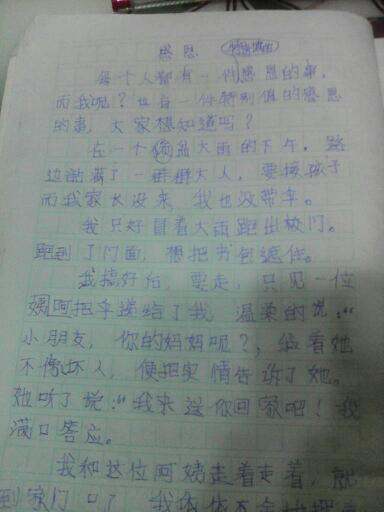 感恩
每个人都有一件感恩的事,
而我呢?也有一件特别值的感恩
的事,大家想知道吗?
在一个倾盆大雨的下午,路
边站满了一群群大人,要接孩子
而我家长没来,我也没带伞。
我只好冒着大雨跑出校门。
跑到了门面,想把书包遮住。
我搞好后,要走,只见一位
姨阿把伞递给了我,温柔的说:“
小朋友,你的妈妈呢?,我看她
不像坏人,便把实情告诉了她。
她听了说:“我来送你回家吧!我
满口答应。
我和这位阿姨走着走着,就
到家门口了,我依依不舍地